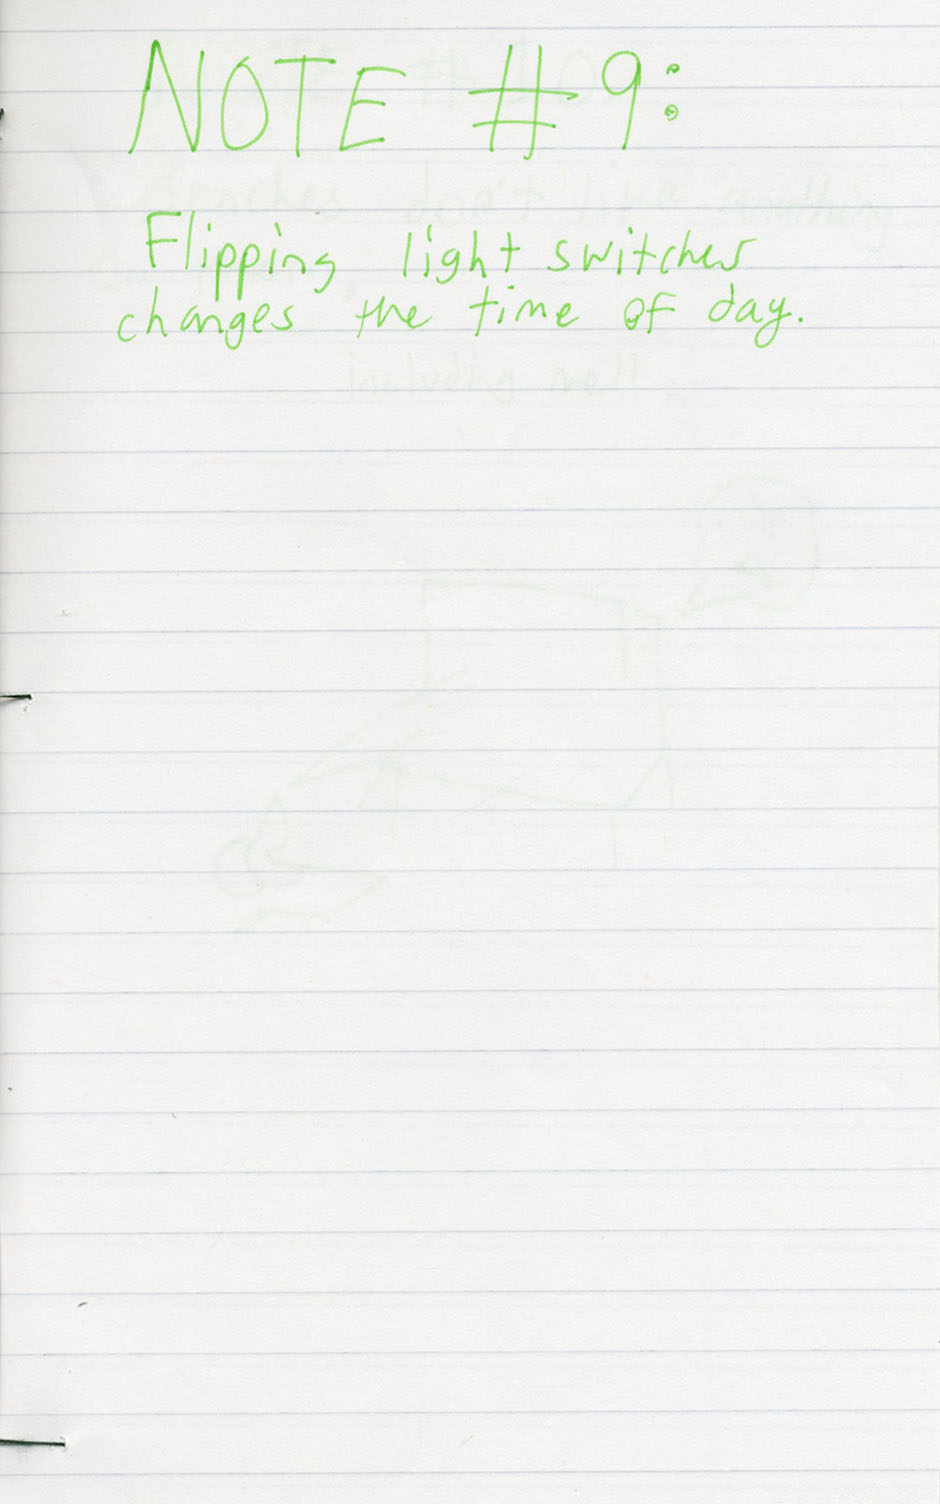 NOTE #9:
Flipping light switches
changes the time of day.